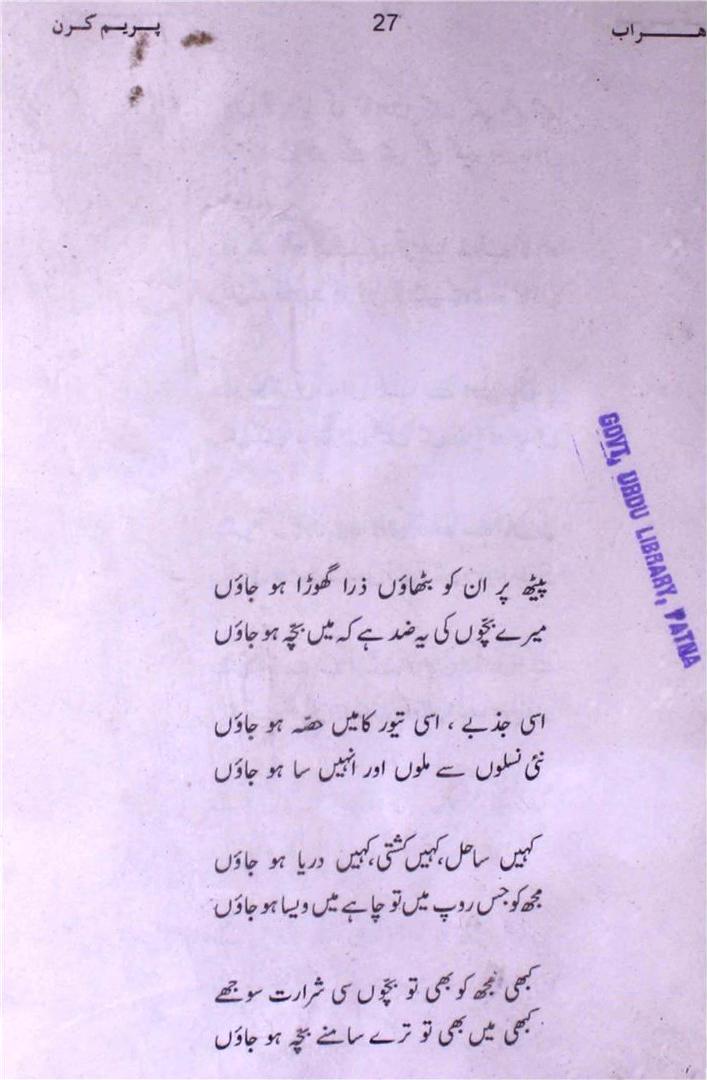 ھـــراب
27
پـریـم کـرن
پیٹھ پر ان کو بٹھاؤں ذرا گھوڑا ہو جاؤں
میرے بچّوں کی یہ ضد ہے کہ میں بچّہ ہو جاؤں
اسی جذبے ، اسی تیور کا میں حصّہ ہو جاؤں
نئی نسلوں سے ملوں اور انہیں سا ہو جاؤں
کہیں ساحل، کہیں کشتی، کہیں دریا ہو جاؤں
مجھ کو جس روپ میں تو چاہے میں ویسا ہو جاؤں
کبھی مجھ کو بھی تو بچّوں سی شرارت سوجھے
کبھی میں بھی تو ترے سامنے بچّہ ہو جاؤں
GOVT. URDU LIBRARY, PATNA